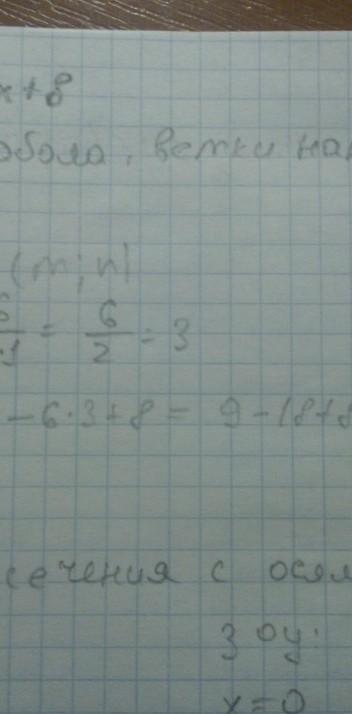 x+8
обола, ветки нап
(m; n)
6/·1 = 6/2 = 3
-6·3+8 = 9-18+8
сечения с осям
З оу:
x=0